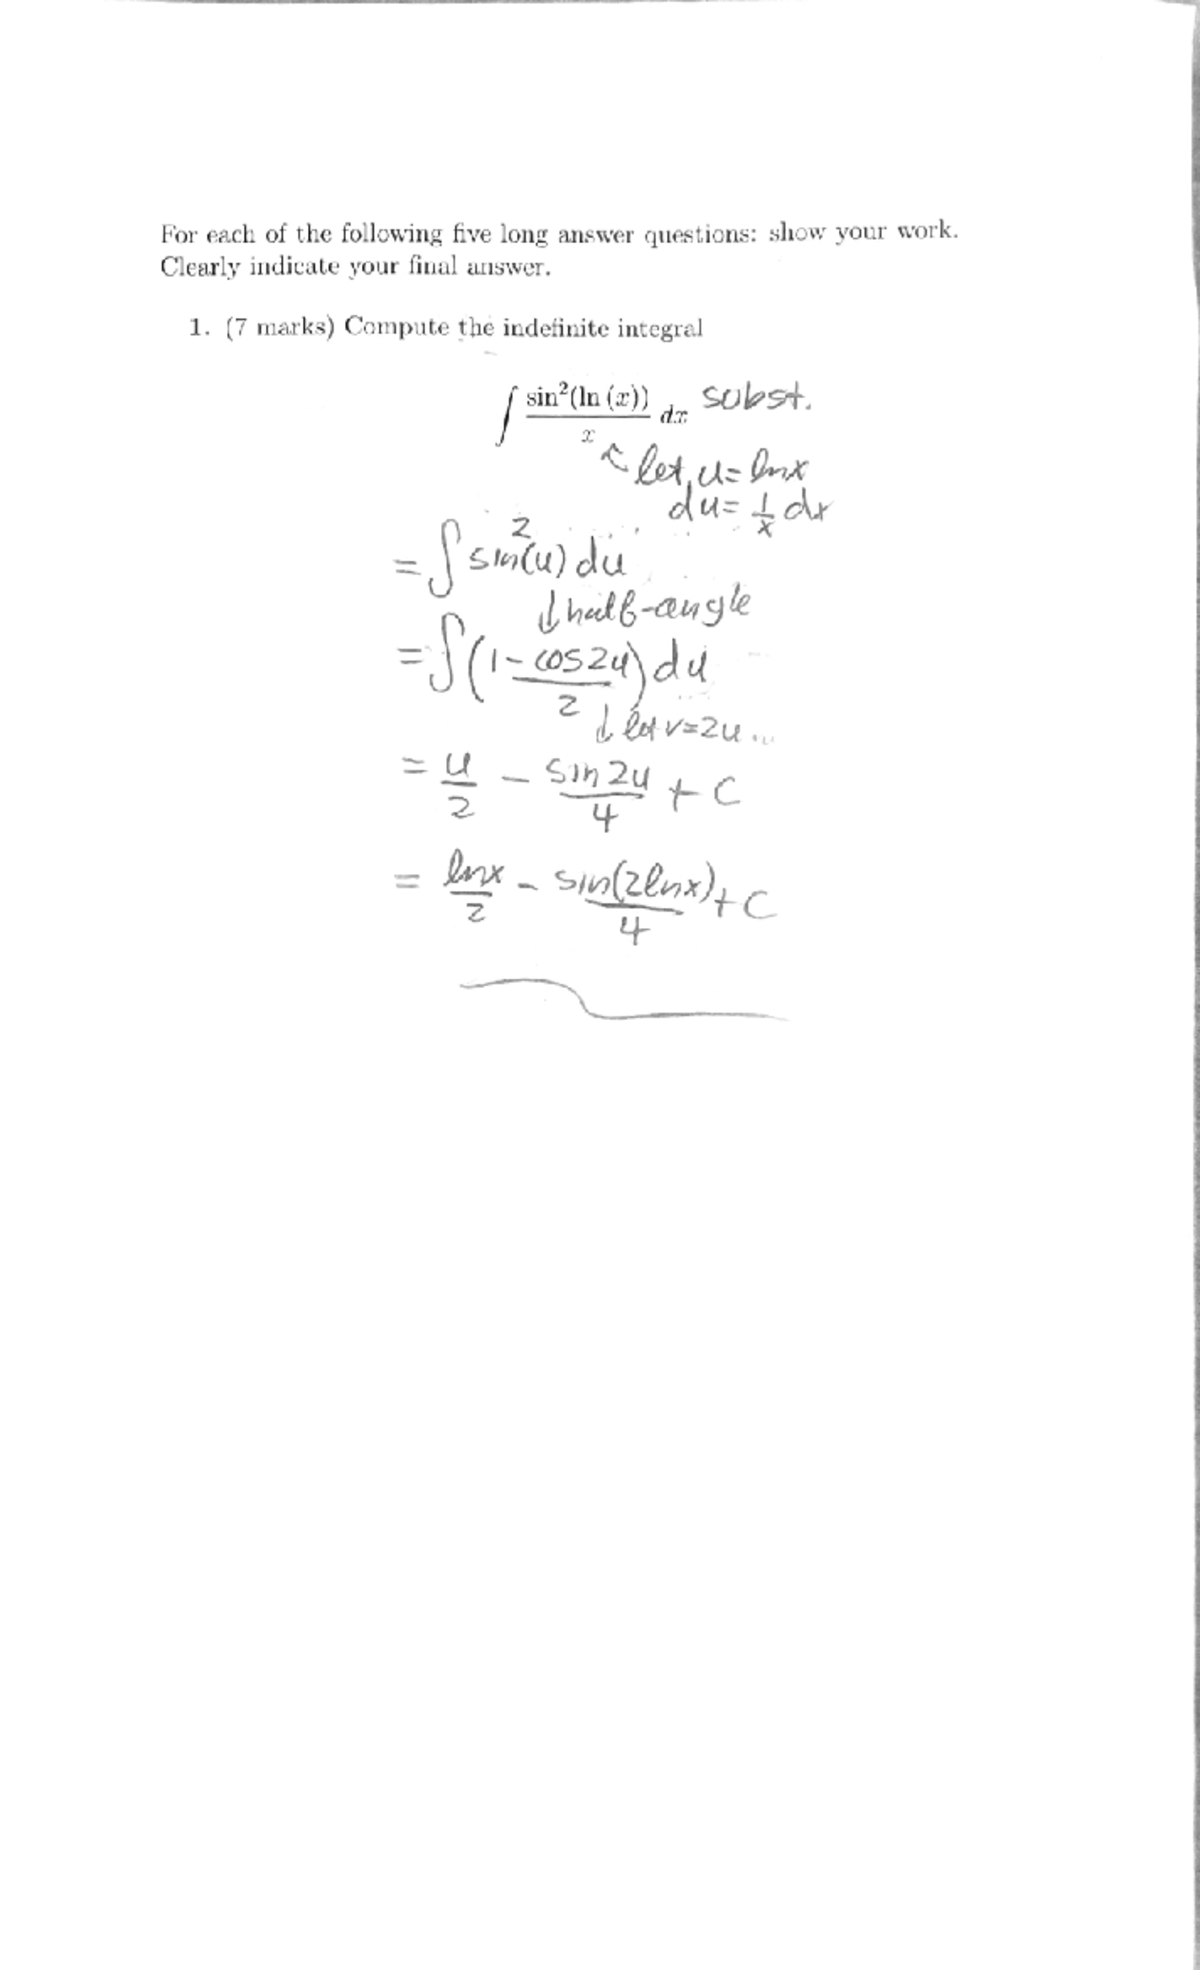 For each of the following five long answer questions: show your work.
Clearly indicate your final answer.
1. (7 marks) Compute the indefinite integral
∫ sin²(ln (x))/x dx subst.
↖ let u= lnx
du= 1/x dx
= ∫ sin²(u) du
↓ half-angle
= ∫ (1-cos2u)/2 du
↓ let v=2u ...
= u/2 - sin2u/4 + C
= lnx/2 - sin(2lnx)/4 + C